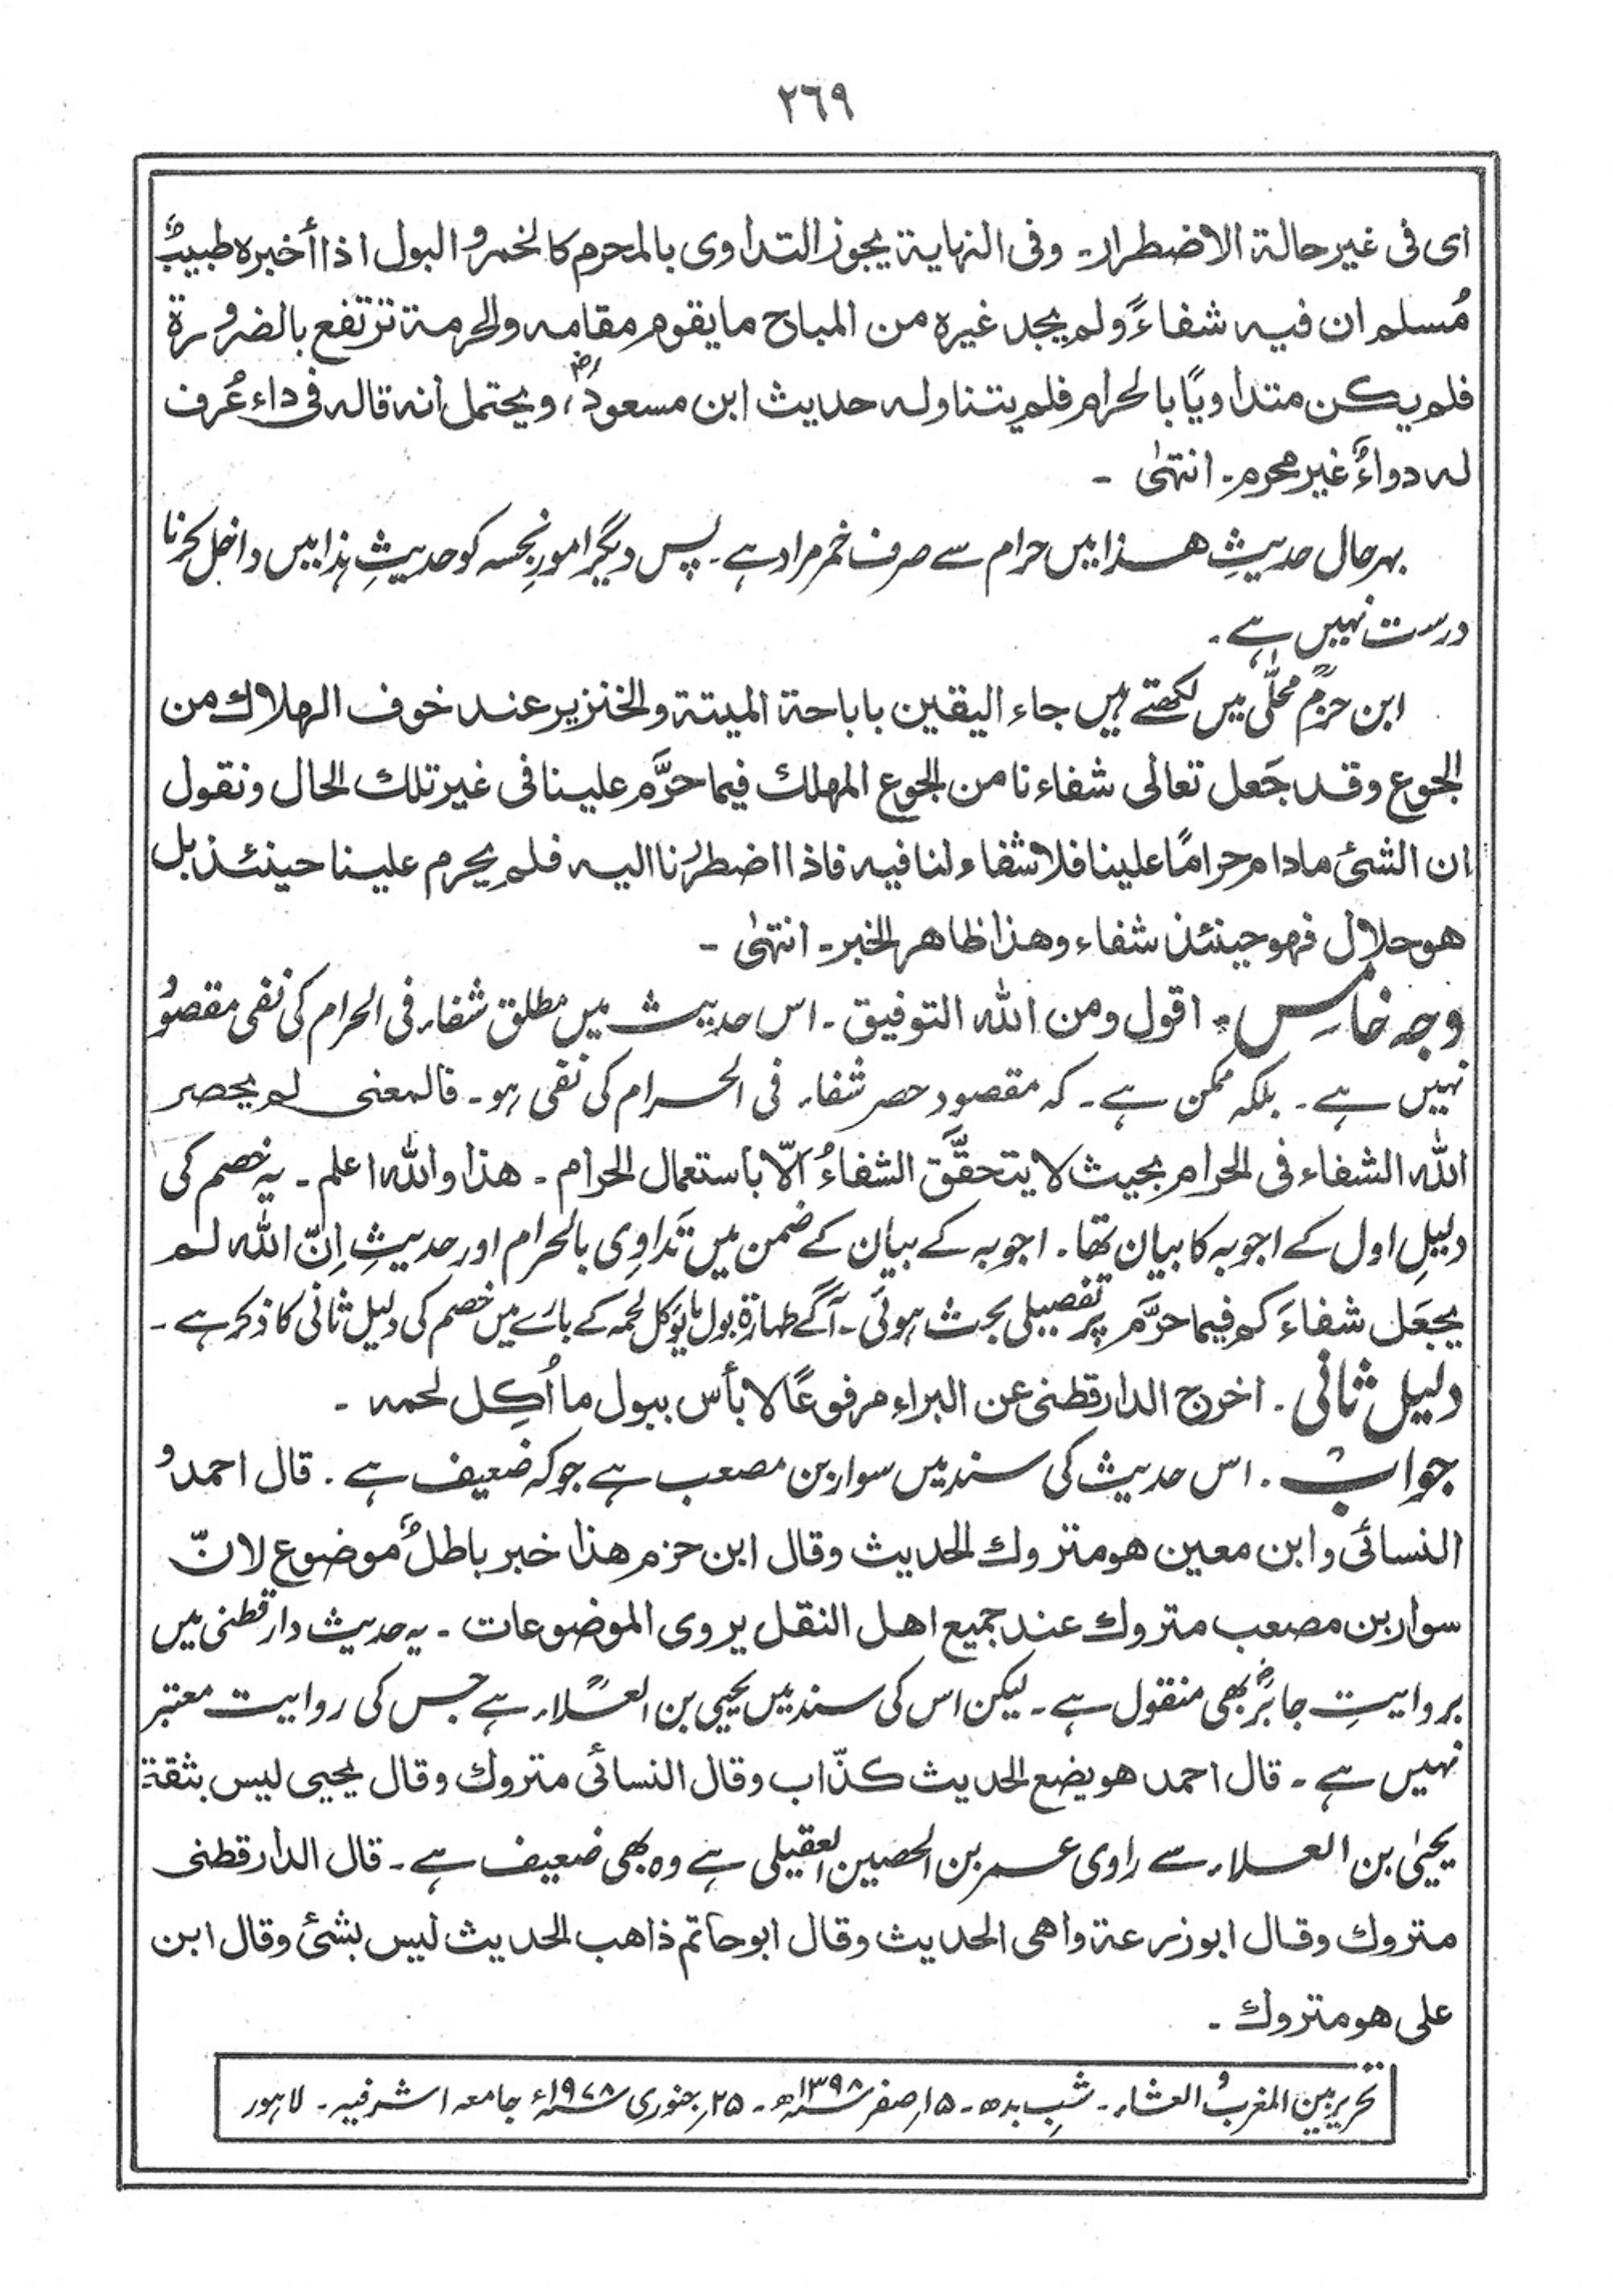 ٢٦٩
ای فی غیر حالة الاضطرار۔ وفی النہایة یجوز التداوی بالمحرم کالخمر و البول اذا أخبرہ طبیبٌ
مُسلم ان فیہ شفاءً ولم یجد غیرہ من المباح ما یقوم مقامہ والحرمة ترتفع بالضرورة
فلم یکن متداویًا بالحرام فلم یتناولہ حدیث ابن مسعودؓ، ویحتمل أنہ قالہ فی داء عُرف
لہ دواءٌ غیر محرم۔ انتہیٰ ۔
بہرحال حدیثِ ھذا میں حرام سے صرف خمر مراد ہے۔ پس دیگر امورِ نجسہ کو حدیثِ ہذا میں داخل کرنا
درست نہیں ہے۔
ابن حزمؒ محلّٰی میں لکھتے ہیں جاء الیقین باباحة المیتة والخنزیر عند خوف الہلاك من
الجوع وقد جَعل تعالی شفاءنا من الجوع المهلك فیما حرَّم علینا فی غیر تلك الحال ونقول
ان الشئ مادام حرامًا علینا فلا شفاء لنا فیہ فاذا اضطرُرنا الیہ فلم یحرم علینا حینئذ بل
ھو حلال فہو حینئذ شفاء وھذا ظاھر الخبر۔ انتہیٰ ۔
وجہ خامس۔ اقول ومن اللہ التوفیق۔ اس حدیث میں مطلق شفاء فی الحرام کی نفی مقصُود
نہیں ہے۔ بلکہ ممکن ہے۔ کہ مقصود حصر شفاء فی الحرام کی نفی ہو۔ فالمعنی لم یحصر
اللہ الشفاء فی الحرام بحیث لا یتحقَّق الشفاءُ الّا باستعمال الحرام۔ ھذا واللہ اعلم۔ یہ خصم کی
دلیلِ اول کے اجوبہ کا بیان تھا۔ اجوبہ کے بیان کے ضمن میں تَداوِی بالحرام اور حدیثِ اِنّ اللہ لم
یجعَل شفاءَ کم فیما حرَّم پر تفصیلی بحث ہوئی۔ آگے طہارۃ بول ما یُؤکل لحمہ کے بارے میں خصم کی دلیل ثانی کا ذکر ہے۔
دلیل ثانی۔ اخرج الدارقطنی عن البراء مرفوعًا لا بأس ببول ما اُکِل لحمہ ۔
جواب۔ اس حدیث کی سند میں سوار بن مصعب ہے جو کہ ضعیف ہے۔ قال احمد و
النسائی وابن معین ھو متروك الحدیث وقال ابن حزم ھذا خبر باطلٌ موضوع لانّ
سوار بن مصعب متروك عند جمیع اھل النقل یروی الموضوعات۔ یہ حدیث دارقطنی میں
بروایتِ جابرؓ بھی منقول ہے۔ لیکن اس کی سند میں یحیی بن العلاء ہے جس کی روایت معتبر
نہیں ہے۔ قال احمد ھو یضع الحدیث کذّاب وقال النسائی متروك وقال یحیی لیس بثقة
یحیٰی بن العلاء سے راوی عمر بن الحصین العقیلی ہے وہ بھی ضعیف ہے۔ قال الدارقطنی
متروك وقال ابوزرعة واھی الحدیث وقال ابوحاتم ذاھب الحدیث لیس بشئ وقال ابن
علی ھو متروك ۔
تحریر بین المغرب و العشاء۔ شبِ بدھ۔ ١٥ صفر ١٣٩٨ھ۔ ٢٥ جنوری ١٩٧٨ء جامعہ اشرفیہ۔ لاہور